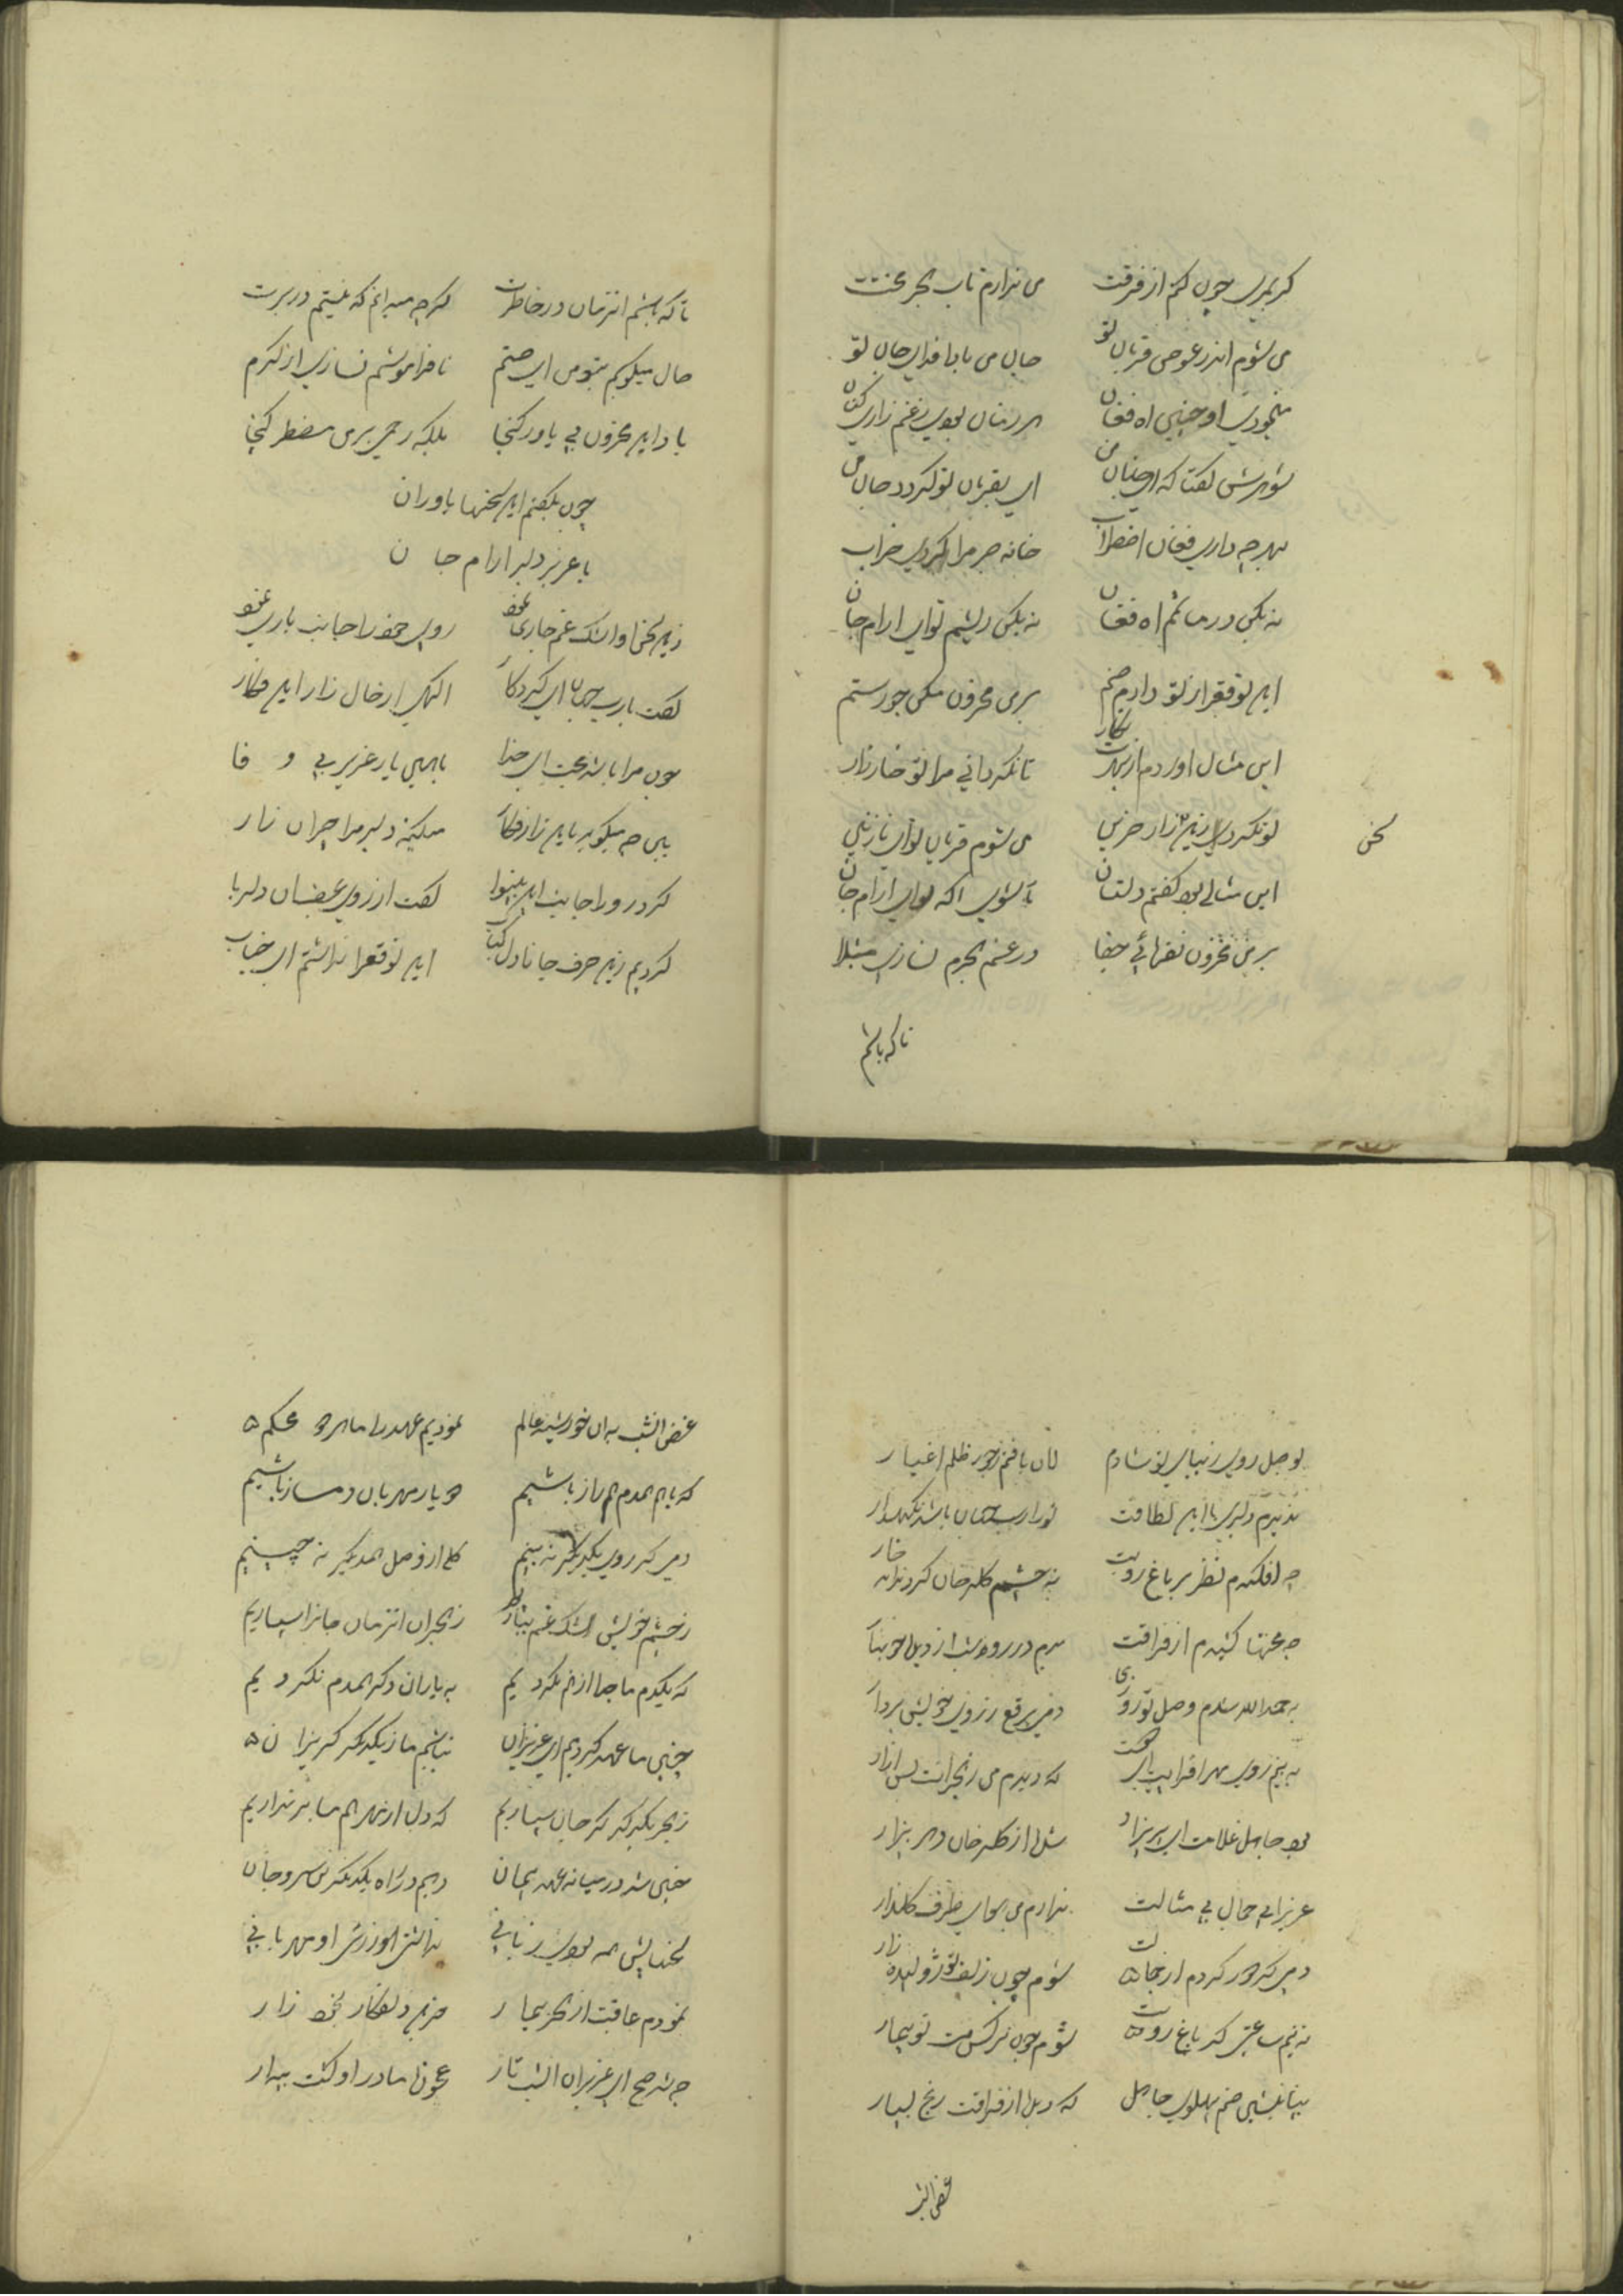 کر بمیری چون کنم از فرقت من ندارم تاب هجر محنتت
من شوم اندر عوض قربان تو جان من بادا فدای جان تو
او چنین اه فغان هر زمان بودی زغم زاری کنان
شوهرش گفتا که ای جانان من ای بقربان تو کردد جان من
بهر چه داری فغان اضطراب خانه صبر مرا کردی خراب
نه بکس در ماتم اه فغان نه بکس توای ارام جان
این توقع از تو دارم صنم بر من محزون مکن جور ستم
این مثال اوردم از بهرت نکار تا نکردانی مرا تو خار زار
تو نکردی زین زار حزین من شوم قربان توای نازنین
سخن
این مثالی بود گفتم دلستان تا شوی اکه توای ارام جان
بر من محزون نفرمائی جفا در غم هجرم نسازی مبتلا
تا که باشم
تا که باشم انزمان در خاطرت کرچه میدانم که نیستم در برت
حال میکویم بتو من ای صنم نا فراموشم نسازی از کرم
یاد این محزون بی یاور کنی بلکه رحمی بر من مضطر کنی
چون بگفتم این سخنها یاوران
با عزیز دلبر ارام جان
زین سخن او اشک غم جاری نمود روی خود را جانب باری نمود
گفت یارب ای کردکار اکهی از حال زار این فکار
چون مرا باشد محبت ای خدا با همین یار عزیز بی وفا
ببین چه میکوید باین زار فکار میکند دلبر مرا چران زار
کرد رو را جانب این بینوا گفت از روی غضب ان دلربا
کردیم زین حرف جانا دل کباب این توقع را نداشتم ای جناب
بوصل روی زیبای تو شادم ظلم اغیار
ندیدم دلبری با این لطافت تورا رب جهان باشد نکهدار
چه افکندم نظر بر باغ رویت به چشم کلرخان کردند خار
چه محنتها کشیدم از فراقت
بحمد الله شدم وصل تو روزی دمی برقع ز روی خویش بردار
به بینم روی مهر افزایت ای که دیدم من زهجرانت بس ازار
بود جاهل غلامت ای پریزاد شد از کلرخان دهر بیزار
عزیزا بی جمال بی مثالت ندارم من هوای طرف کلزار
دمی کر دور کردم از شوم چون زلف تو ژولیده زار
نه بینم ساعتی کر باغ رویت شوم چون نرکس مست تو بیمار
بیا بنشین صنم پهلوی جاهل که دید از فراقت رنج بسیار
غرض انشب
غرض انشب به ان خورشید عالم نمودیم عهد را ما هر دو محکم
که باهم همدم همراز باشیم دو یار مهربان دمساز باشیم
دمی کر روی یکدیکر نه بینیم کلی از وصل همدیکر نه چینیم
زچشم خویش اشک غم بباریم زهجران انزمان جانرا سپاریم
که یکدم ما جدا از هم نکردیم به یاران دکر همدم نکردیم
چنین ما عهد کردیم ای عزیزان نباشیم ما زیکدیکر کریزان
زهجر یکدیکر کر جان سپاریم که دل از مهر هم ما بر نداریم
چنین شد در میانه عهد پیمان دهیم در راه یکدیکر سر و جان
سخنهایش همه بودی زبانی نداشتی او مهربانی
نمودم عاقبت از هجر بیمار حزین دلفکار خود زار
چه شد صبح ای عزیزان انشب تار او کشت بیدار